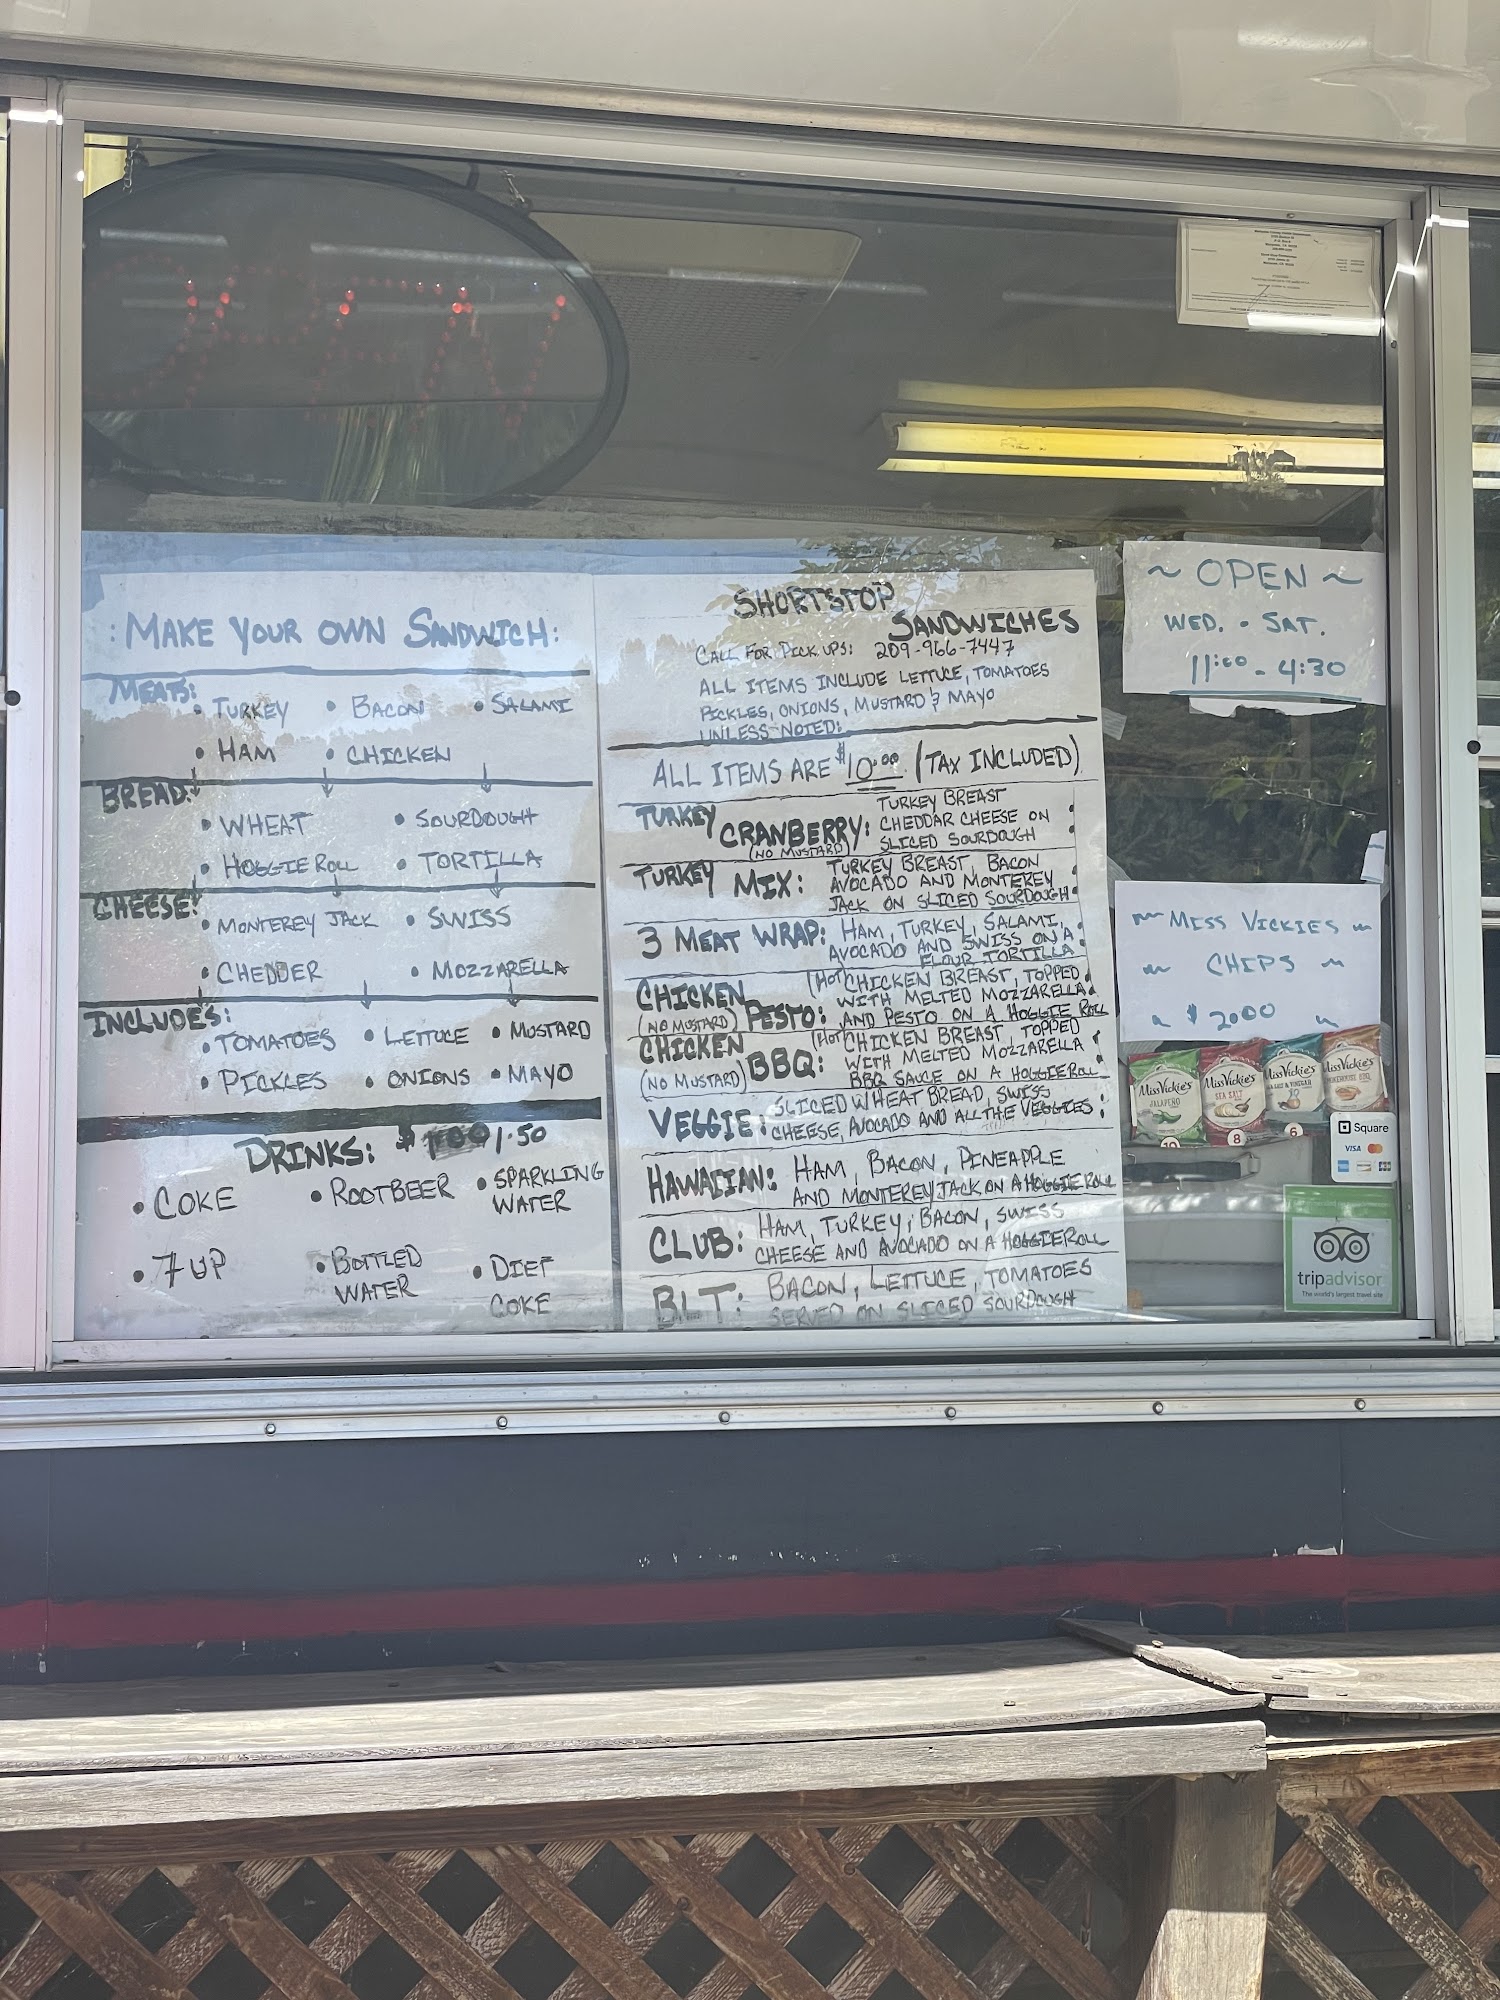 : MAKE YOUR OWN SANDWICH:
MEATS:
• TURKEY • BACON • SALAMI
• HAM • CHICKEN
BREAD:
• WHEAT • SOURDOUGH
• HOGGIE ROLL • TORTILLA
CHEESE:
• MONTEREY JACK • SWISS
• CHEDDER • MOZZARELLA
INCLUDES:
• TOMATOES • LETTUCE • MUSTARD
• PICKLES • ONIONS • MAYO
DRINKS: $ 1.50
• COKE • ROOTBEER • SPARKLING
WATER
• 7 UP • BOTTLED • DIET
WATER COKE
SHORTSTOP
SANDWICHES
CALL FOR PICK UPS: 209-966-7447
ALL ITEMS INCLUDE LETTUCE, TOMATOES
PICKLES, ONIONS, MUSTARD & MAYO
UNLESS NOTED:
ALL ITEMS ARE $10.00 (TAX INCLUDED)
TURKEY CRANBERRY: TURKEY BREAST
CHEDDAR CHEESE ON
(NO MUSTARD) SLICED SOURDOUGH
TURKEY MIX: TURKEY BREAST, BACON
AVOCADO AND MONTEREY
JACK ON SLICED SOURDOUGH
3 MEAT WRAP: HAM, TURKEY, SALAMI,
AVOCADO AND SWISS ON A
FLOUR TORTILLA
CHICKEN PESTO: (HOT) CHICKEN BREAST, TOPPED
WITH MELTED MOZZARELLA
(NO MUSTARD) AND PESTO ON A HOGGIE ROLL
CHICKEN BBQ: (HOT) CHICKEN BREAST, TOPPED
WITH MELTED MOZZARELLA
(NO MUSTARD) BBQ SAUCE ON A HOGGIE ROLL
VEGGIE: SLICED WHEAT BREAD, SWISS
CHEESE, AVOCADO AND ALL THE VEGGIES
HAWAIIAN: HAM, BACON, PINEAPPLE
AND MONTEREY JACK ON A HOGGIE ROLL
CLUB: HAM, TURKEY, BACON, SWISS
CHEESE AND AVOCADO ON A HOGGIE ROLL
BLT: BACON, LETTUCE, TOMATOES
SERVED ON SLICED SOURDOUGH
~ OPEN ~
WED. - SAT.
11:00 - 4:30
~ MISS VICKIES ~
~ CHIPS ~
~ $ 2.00 ~
Miss Vickie's
JALAPEÑO
10
Miss Vickie's
SEA SALT
8
Miss Vickie's
SEA SALT & VINEGAR
6
Miss Vickie's
SMOKEHOUSE BBQ
Square
VISA
tripadvisor
The world's largest travel site